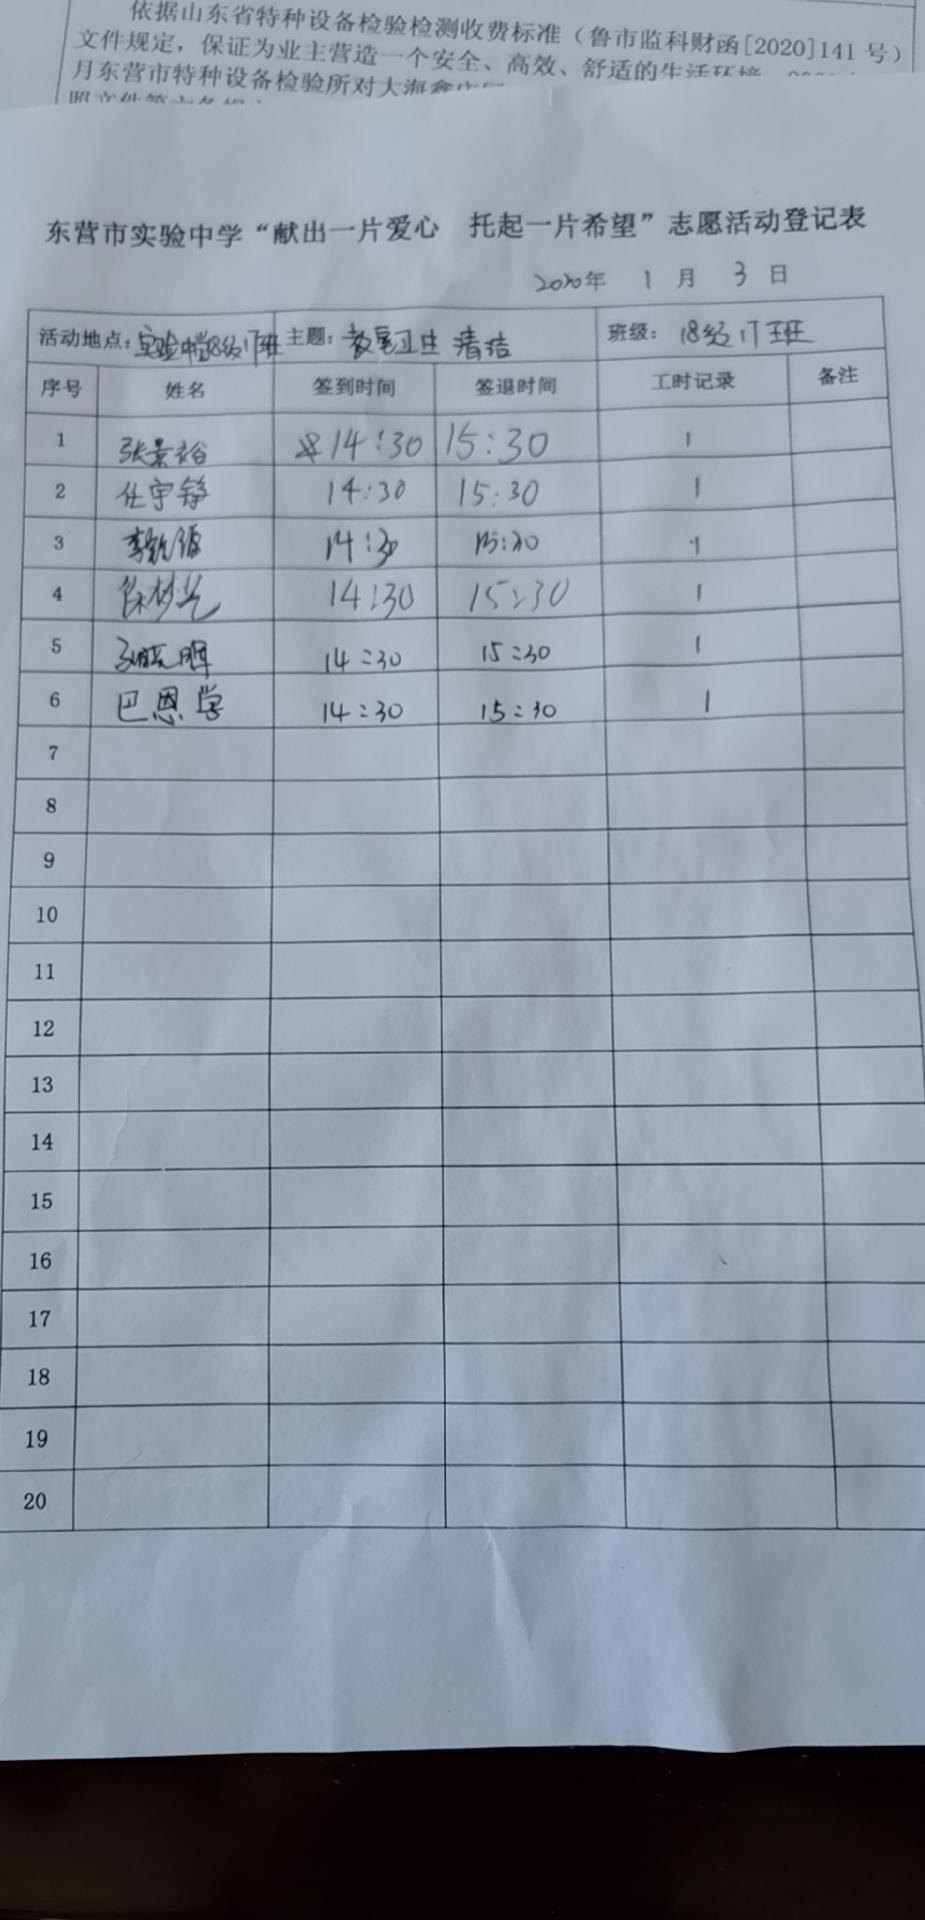 依据山东省特种设备检验检测收费标准（鲁市监科财函[2020]141 号）
文件规定，保证为业主营造一个安全、高效、舒适的生活环境
月东营市特种设备检验所对大海鑫
东营市实验中学“献出一片爱心 托起一片希望”志愿活动登记表
2020年 1 月 3 日
活动地点：实验中学18级17班 主题：教室卫生清洁 班级：18级17班
序号 姓名 签到时间 签退时间 工时记录 备注
1 张景裕 14:30 15:30 1
2 任宇铮 14:30 15:30 1
3 14:30 15:30 1
4 徐梦 14:30 15:30 1
5 14:30 15:30 1
6 巴恩学 14:30 15:30 1
7
8
9
10
11
12
13
14
15
16
17
18
19
20